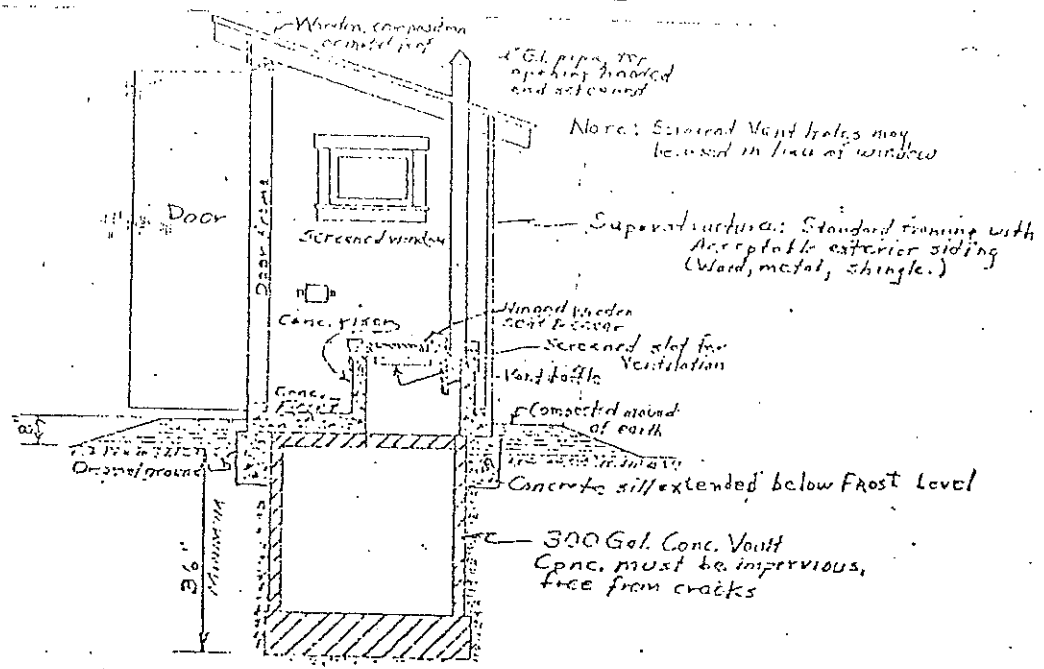 Wooden, composition
or metal roof
G.I. pipe, top
opening hooded
and screened
Note: Screened Vent holes may
be used in lieu of window
Door
Door frame
Screened window
Superstructure: Standard framing with
Acceptable exterior siding
(Wood, metal, shingle.)
Conc. riser
Hinged wooden
seat & cover
Screened slot for
Ventilation
Vent baffle
Conc.
Compacted mound
of earth
Original ground
Concrete sill extended below Frost Level
36" MINIMUM
300 Gal. Conc. Vault
Conc. must be impervious,
free from cracks